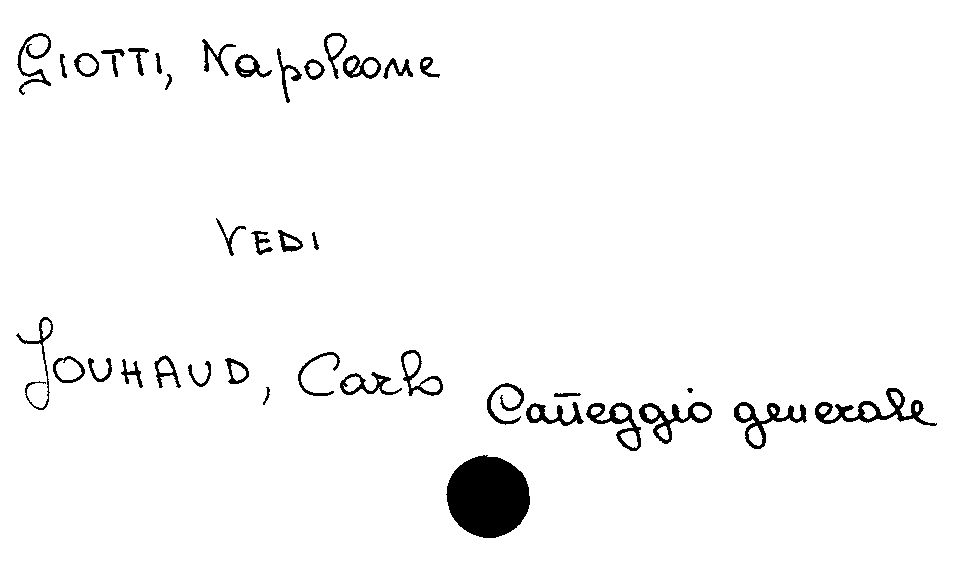 GIOTTI, Napoleone
VEDI
JOUHAUD, Carlo
Carteggio generale